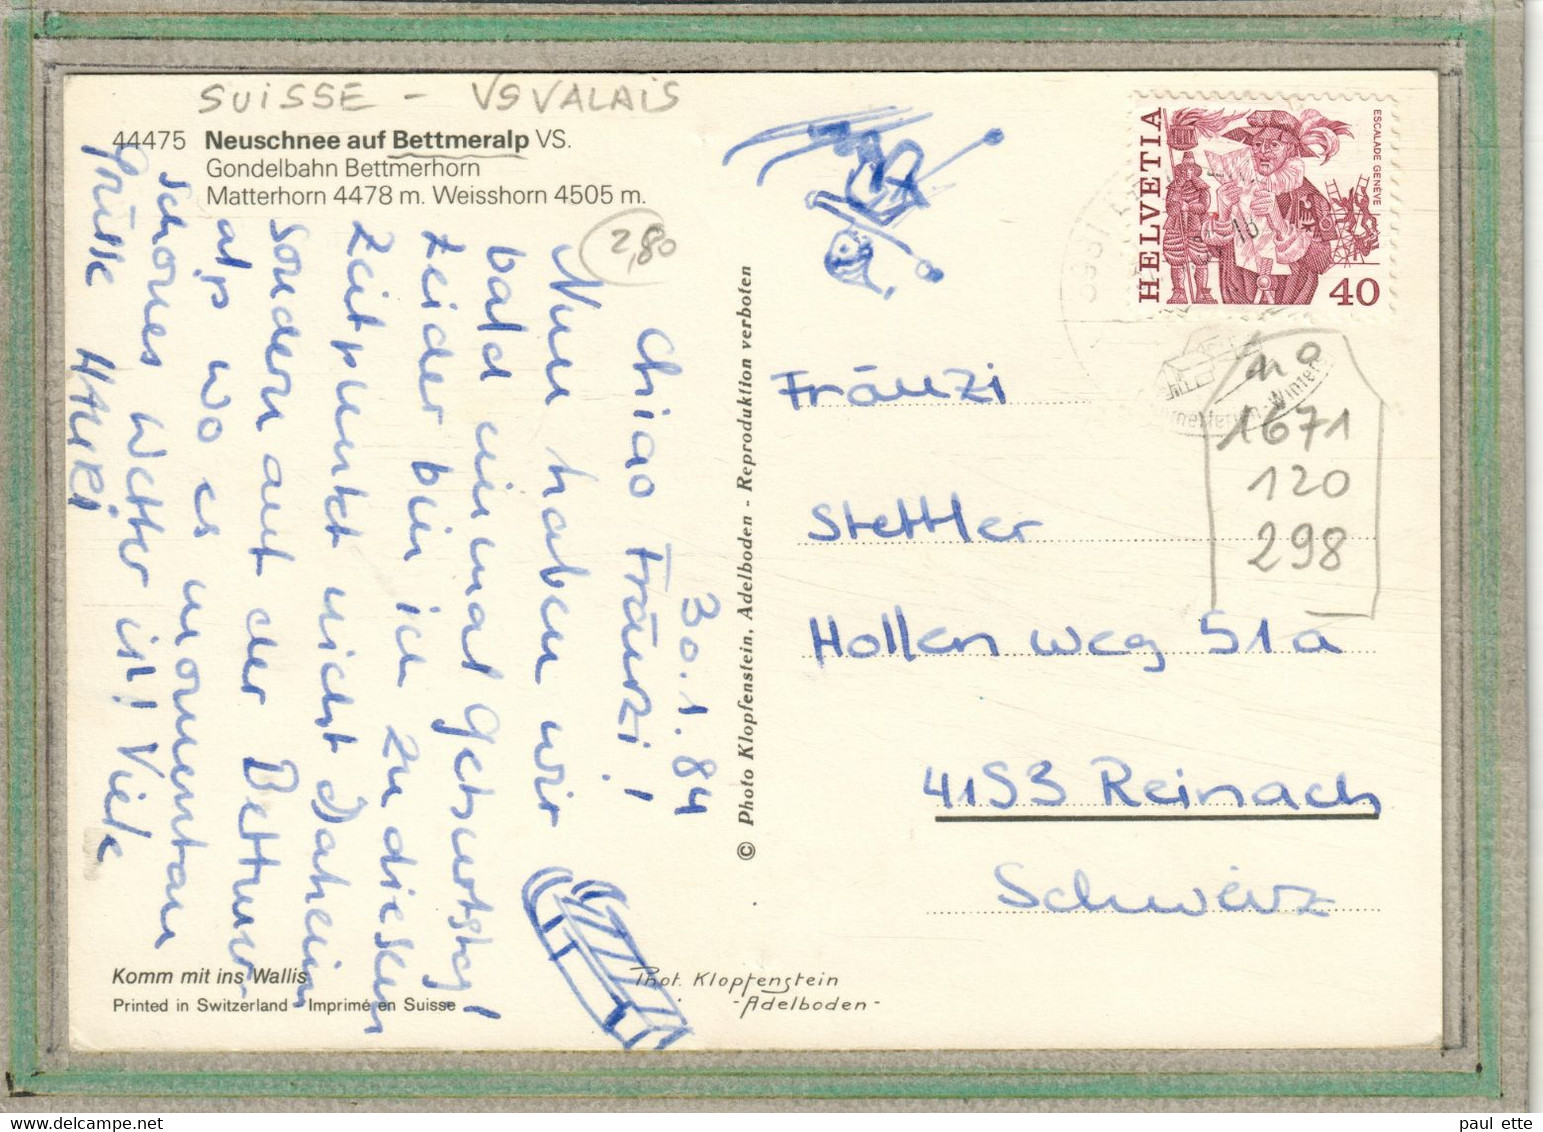 SUISSE - VS VALAIS
44475 Neuschnee auf Bettmeralp VS.
Gondelbahn Bettmerhorn
Matterhorn 4478 m. Weisshorn 4505 m.
2,80
30.1.84
Chiao Fränzi!
Nun haben wir
bald einmal Geburtstag!
Leider bin ich zu diesem
Zeitpunkt nicht Daheim
sondern auf der Bettmer
alp wo es momentan
schönes Wetter ist! Viele
Grüsse HAURI
Komm mit ins Wallis
Printed in Switzerland - Imprimé en Suisse
Phot. Klopfenstein
- Adelboden -
© Photo Klopfenstein, Adelboden - Reproduktion verboten
HELVETIA
ESCALADE GENEVE
40
Fränzi
Stettler
Hollenweg 51a
4153 Reinach
Schweiz
no
1671
120
298
paul ette